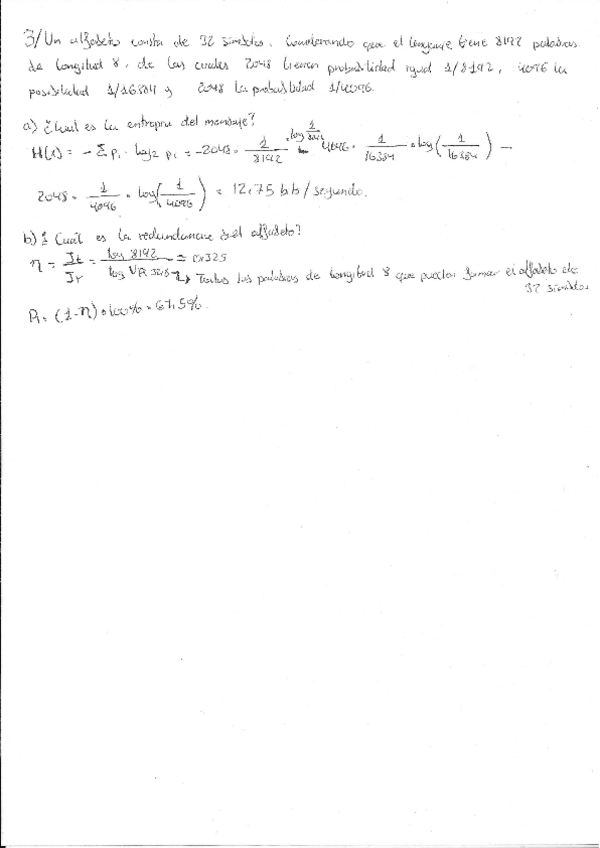 3/ Un alfabeto consta de 32 símbolos. Considerando que el lenguaje tiene 8192 palabras
de longitud 8, de las cuales 2048 tienen probabilidad igual 1/8192, 4096 la
posibilidad 1/16384 y 2048 la probabilidad 1/4096.
a) ¿Cual es la entropia del mensaje?
H(x) = - Σ pi · log2 pi = -2048 · 1/8192 · log 1/8192 - 4096 · 1/16384 · log(1/16384) -
2048 · 1/4096 · log(1/4096) = 12.75 bit/segundo.
b) ¿Cuál es la redundancia del alfabeto?
η = It/Ir = log 8192 / log VR 32,8 = 0.325
↳ Todas las palabras de longitud 8 que puedan formar el alfabeto de
32 símbolos
R = (1-η) · 100% = 67.5%.